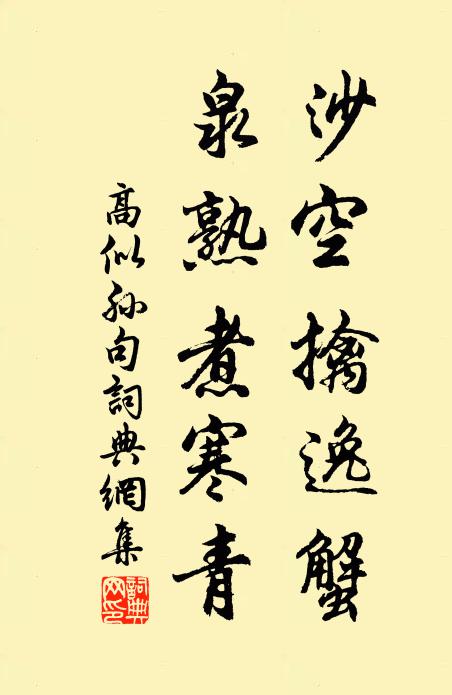 沙空擒逸蟹
泉熟煮寒青
高似孙句詞典網集
詞典網印